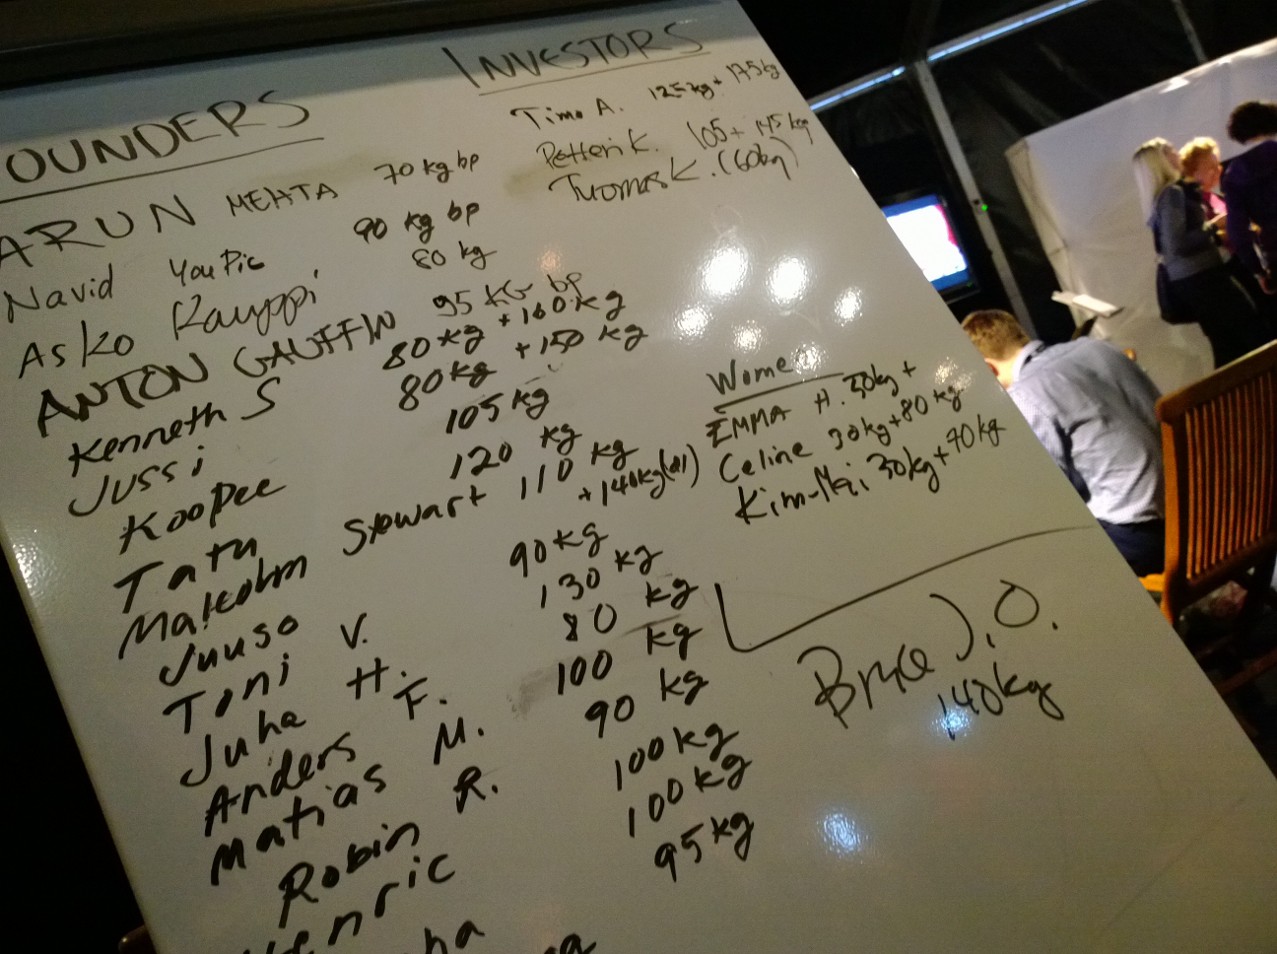 OUNDERS
ARUN MEHTA 70 kg bp
Navid YouPic 90 kg bp
Asko Kauppi 80 kg
ANTON GAUFFIN 95 KG bp
Kenneth S 80 kg + 160 kg
Jussi 80 kg + 150 kg
Koopee 105 kg
Tatu 120 kg
Malcolm Stewart 110 kg
+ 140kg (dl)
Juuso 90 kg
Toni V. 130 kg
Juha H. 80 kg
Anders F. 100 kg
Matias M. 90 kg
Robin R. 100 kg
enric 100 kg
ha 95 kg
INVESTORS
Timo A. 125 kg + 175 kg
Petteri K. 105 + 145 kg
Tuomas K. (60kg)
Women
EMMA H. 30kg +
Celine 30kg + 80 kg
Kim-Mai 30kg + 70 kg
J.O.
140kg